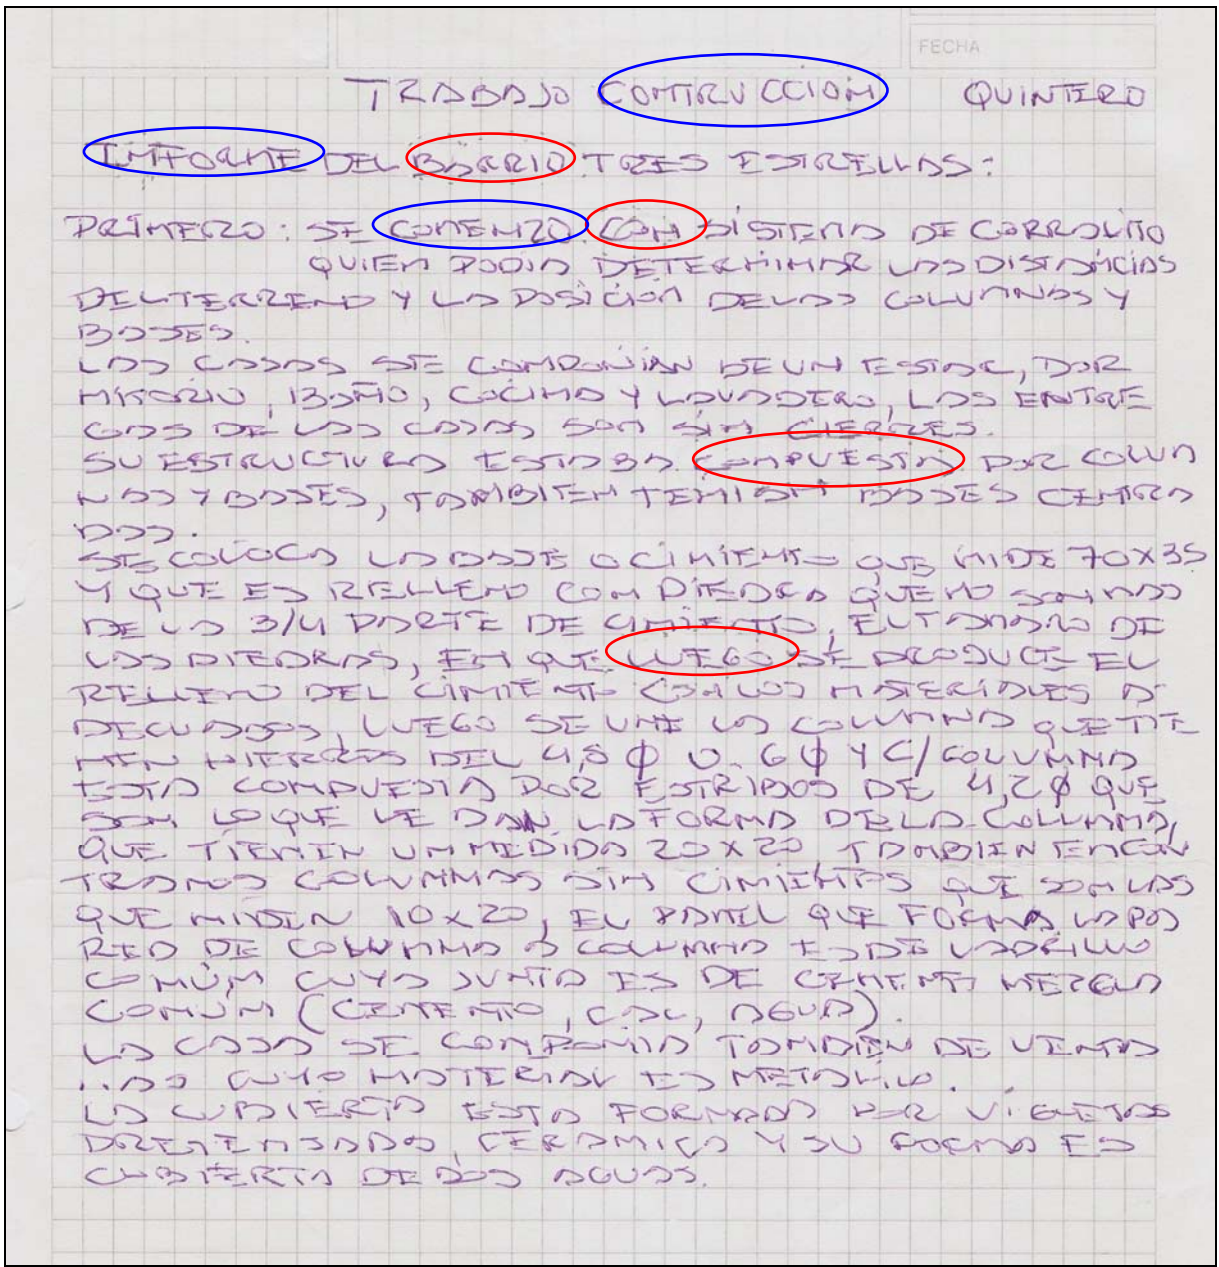 FECHA
TRABAJO CONTRUCCION QUINTERO
IMFORME DEL BARRIO TRES ESTRELLAS:
PRIMERO: SE COMENZO CON SISTEMA DE CORRALITO
QUIEN PODIA DETERMINAR LAS DISTANCIAS
DEL TERRENO Y LA POSICION DE LAS COLUMNAS Y
BASES.
LAS CASAS SE COMPONIAN DE UN ESTAR, DOR
MITORIO, BAÑO, COCINA Y LAVADERO, LAS ENTRE
GAS DE LAS CASAS SON SIN CIERRES.
SU ESTRUCTURA ESTABA COMPUESTA POR COLUM
NAS Y BASES, TAMBIEN TENIAN BASES CENTRA
DAS.
SE COLOCA LA BASE O CIMIENTO QUE MIDE 70X35
Y QUE ES RELLENO CON PIEDRA QUE NO SON MAS
DE LA 3/4 PARTE DE CIMIENTO, EL TAMAÑO DE
LAS PIEDRAS, EN QUE LUEGO SE PRODUCE EL
RELLENO DEL CIMIENTO CON LOS MATERIALES A
DECUADOS, LUEGO SE UNE LA COLUMNA QUE TIE
NEN HIERROS DEL 4,8 φ O. 6 φ Y C/COLUMNA
ESTA COMPUESTA POR ESTRIBOS DE 4,2 φ QUE
SON LO QUE LE DAN LA FORMA DE LA COLUMNA,
QUE TIENEN UN MEDIDA 20X20 TAMBIEN ENCON
TRAMOS COLUMNAS SIN CIMIENTOS QUE SON LAS
QUE MIDEN 10X20, EL PANEL QUE FORMA LA PA
RED DE COLUMNA A COLUMNA ES DE LADRILLO
COMÚN CUYA JUNTA ES DE CEMENTO MEZCLA
COMUN (CEMENTO, CAL, AGUA).
LA CASA SE COMPONIA TAMBIEN DE VENTA
NAS CUYO MATERIAL ES METALICO.
LA CUBIERTA ESTA FORMADA POR VIGUETAS
PRETENSADAS, CERAMICA Y SU FORMA ES
CUBIERTA DE DOS AGUAS.